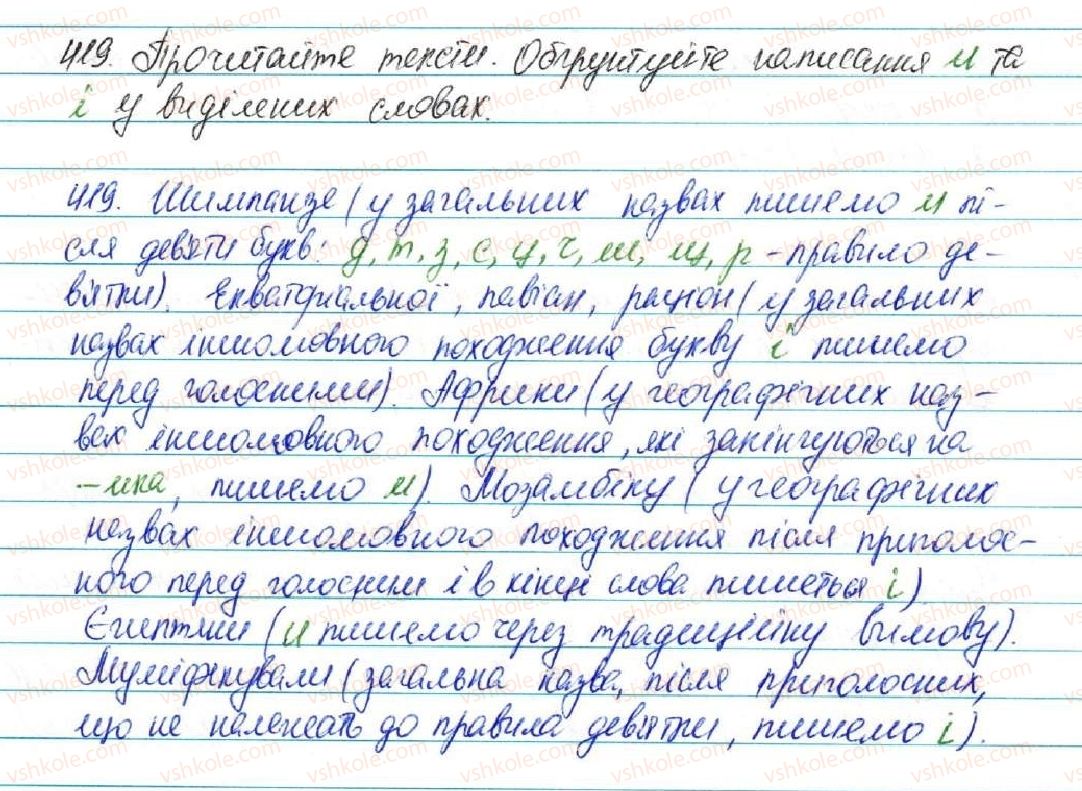 419. Прочитайте тексти. Обґрунтуйте написання и та
і у виділених словах.
419. Шимпанзе (у загальних назвах пишемо и пі-
сля дев'яти букв: д, т, з, с, ц, ч, ш, щ, р - правило де-
в'ятки). Екваторіальної, павіан, раціон (у загальних
назвах іншомовного походження букву і пишемо
перед голосними). Африки (у географічних наз-
вах іншомовного походження, які закінчуються на
-ика, пишемо и). Мозамбіку (у географічних
назвах іншомовного походження після приголос-
ного перед голосним і в кінці слова пишеться і)
Єгиптяни (и пишемо через традиційну вимову).
Муміфікували (загальна назва, після приголосних,
що не належать до правила дев'ятки, пишемо і).